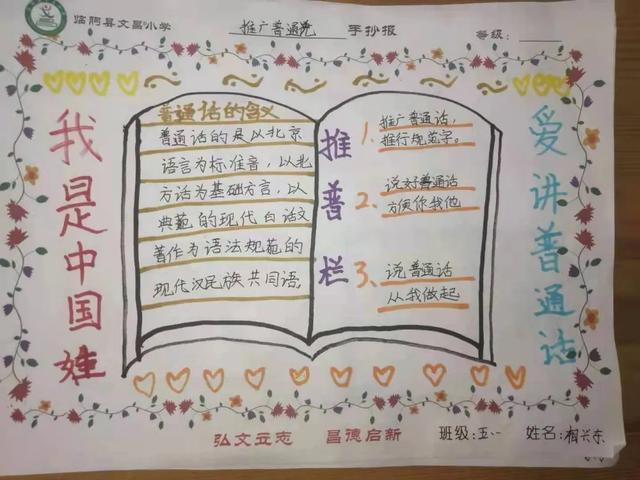 临朐县文昌小学
推广普通话 手抄报
等级：
我是中国娃
普通话的含义
普通话的是以北京
语言为标准音，以北
方话为基础方言，以
典范的现代白话文
著作为语法规范的
现代汉民族共同语。
推普栏
1.推广普通话，
推行规范字。
2.说好普通话
方便你我他
3.说普通话
从我做起
爱讲普通话
弘文立志 昌德启新
班级：五.一 姓名：相兴东